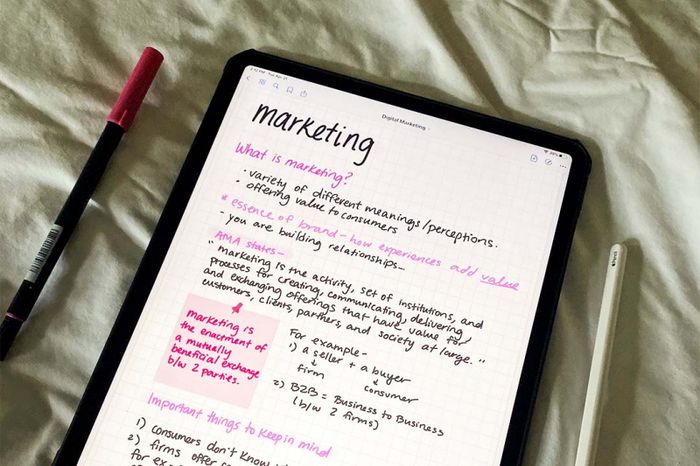 Digital Marketing
marketing
What is marketing?
· variety of different meanings/perceptions.
· offering value to consumers
* essence of brand - how experiences add value
- you are building relationships -
AMA states -
"marketing is the activity, set of institutions, and
processes for creating, communicating, delivering,
and exchanging offerings that have value for
customers, clients, partners, and society at large."
marketing is
the enactment of
a mutually
beneficial exchange
b/w 2 parties.
For example -
1) a seller + a buyer
↓ ↓
firm consumer
2) B2B = Business to Business
(b/w 2 firms)
Important things to keep in mind
1) consumers don't know
2) firms offer
for